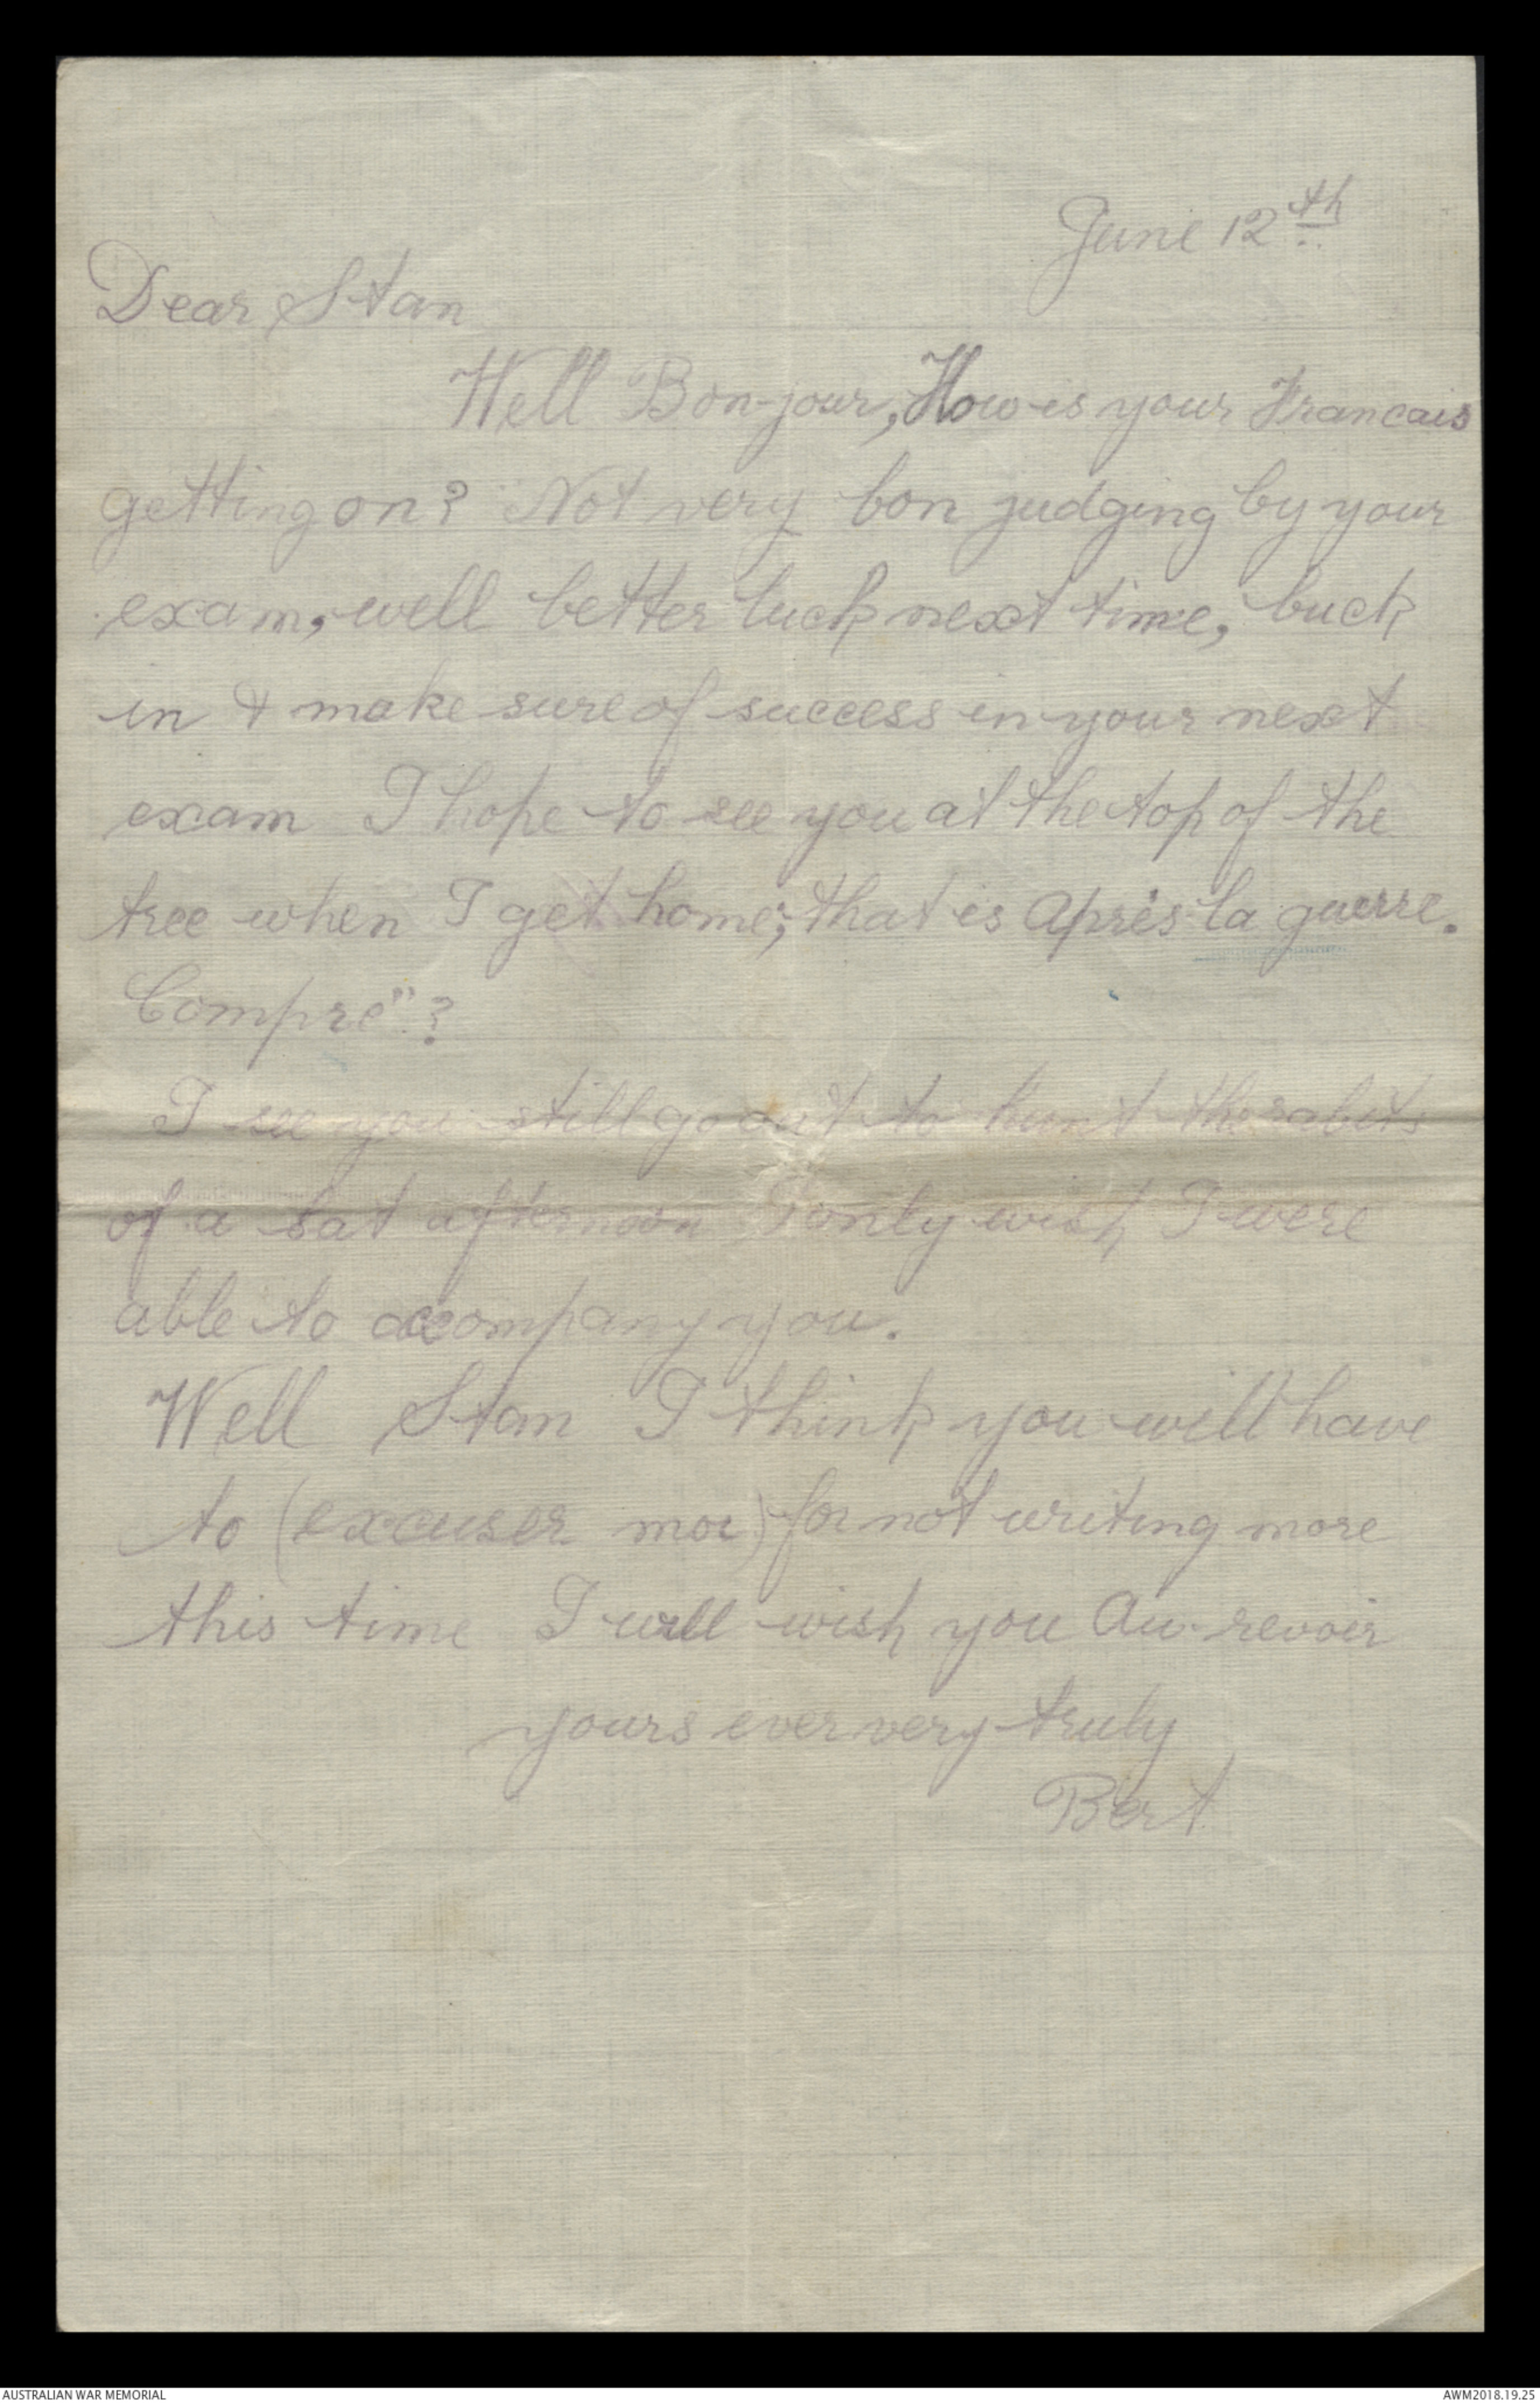 June 12th
Dear Stan
Well Bon-jour, How is your Francais
getting on? Not very bon judging by your
exam, well better luck next time, buck
in & make sure of success in your next
exam I hope to see you at the top of the
tree when I get home; that is Aprés la guerre.
Compre"?
I see you still go out to hunt the rabits
of a Sat afternoon I only wish I were
able to accompany you.
Well Stan I think you will have
to (excuser moi) for not writing more
this time I will wish you Au-revoir
yours ever very truly
Bert.
AUSTRALIAN WAR MEMORIAL
AWM2018.19.25